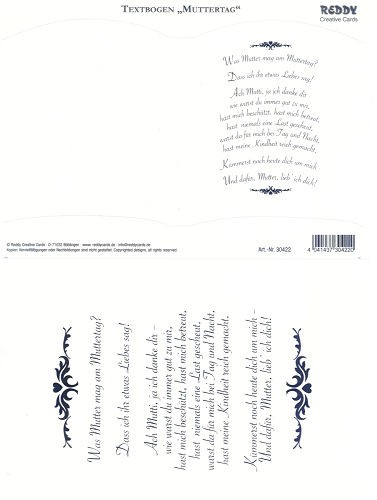 TEXTBOGEN „MUTTERTAG“
REDDY
Creative Cards
Was Mutter mag am Muttertag?
Dass ich ihr etwas Liebes sag!
Ach Mutti, ja ich danke dir
wie warst du immer gut zu mir,
hast mich beschützt, hast mich betreut,
hast niemals eine Last gescheut,
warst du für mich bei Tag und Nacht,
hast meine Kindheit reich gemacht.
Kümmerst noch heute dich um mich
Und dafür, Mutter, lieb´ ich dich!
© Reddy Creative Cards · D-71032 Böblingen · www.reddycards.de · info@reddycards.de
Kopien, Vervielfältigungen oder Rückseitendrucke sind nicht gestattet. Copyrighted designs, all rights reserved
Art.-Nr. 30422
4 041437 304220
Was Mutter mag am Muttertag?
Dass ich ihr etwas Liebes sag!
Ach Mutti, ja ich danke dir –
wie warst du immer gut zu mir,
hast mich beschützt, hast mich betreut,
hast niemals eine Last gescheut,
warst du für mich bei Tag und Nacht,
hast meine Kindheit reich gemacht.
Kümmerst noch heute dich um mich –
Und dafür, Mutter, lieb´ ich dich!